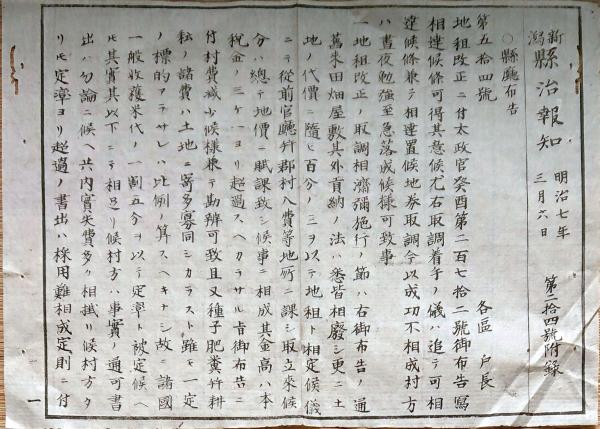 新潟縣治報知 明治七年三月六日 第二拾四號附録
○縣廳布告
第五拾四號 各區 戸長
地租改正ニ付太政官癸酉第二百七拾二號御布告寫
相達候條可得其意候尤右取調着手ノ儀ハ追テ可相
達候條兼テ相達置候地券取調令以成功不相成村方
ハ晝夜勉強至急落成候様可致事
一地租改正ノ取調相濟彌施行ノ節ハ右御布告ノ通
萬来田畑屋敷其外貢納ノ法ハ悉皆相廢シ更ニ土
地ノ代價ニ隨ヒ百分ノ三ヲ以テ地租ト相定候儀
ニテ從前官廳幷郡村入費等地所ニ課シ取立來候
分ハ總テ地價ニ賦課致シ候事ニ相成其金高ハ本
税金ノ三ケ一ヨリ超過スヘカラサル旨御布告ニ
付村費减少候様兼テ勘辨可致且又種子肥糞幷耕
耘ノ諸費ハ土地ニ寄多寡同シカラスト雖モ一定
ノ標的アラサレハ比例ノ算スヘキナシ故ニ諸國
一般收穫米代ノ一割五分ヲ以テ定率ト被定候ヘ
トモ其實其以下ニテ相足リ候村方ハ事實ノ通可書
出ハ勿論ニ候ヘ共内實失費多ク相掛リ候村方タ
リトモ定率ヨリ超過ノ書出ハ採用難相成定則ニ付
一